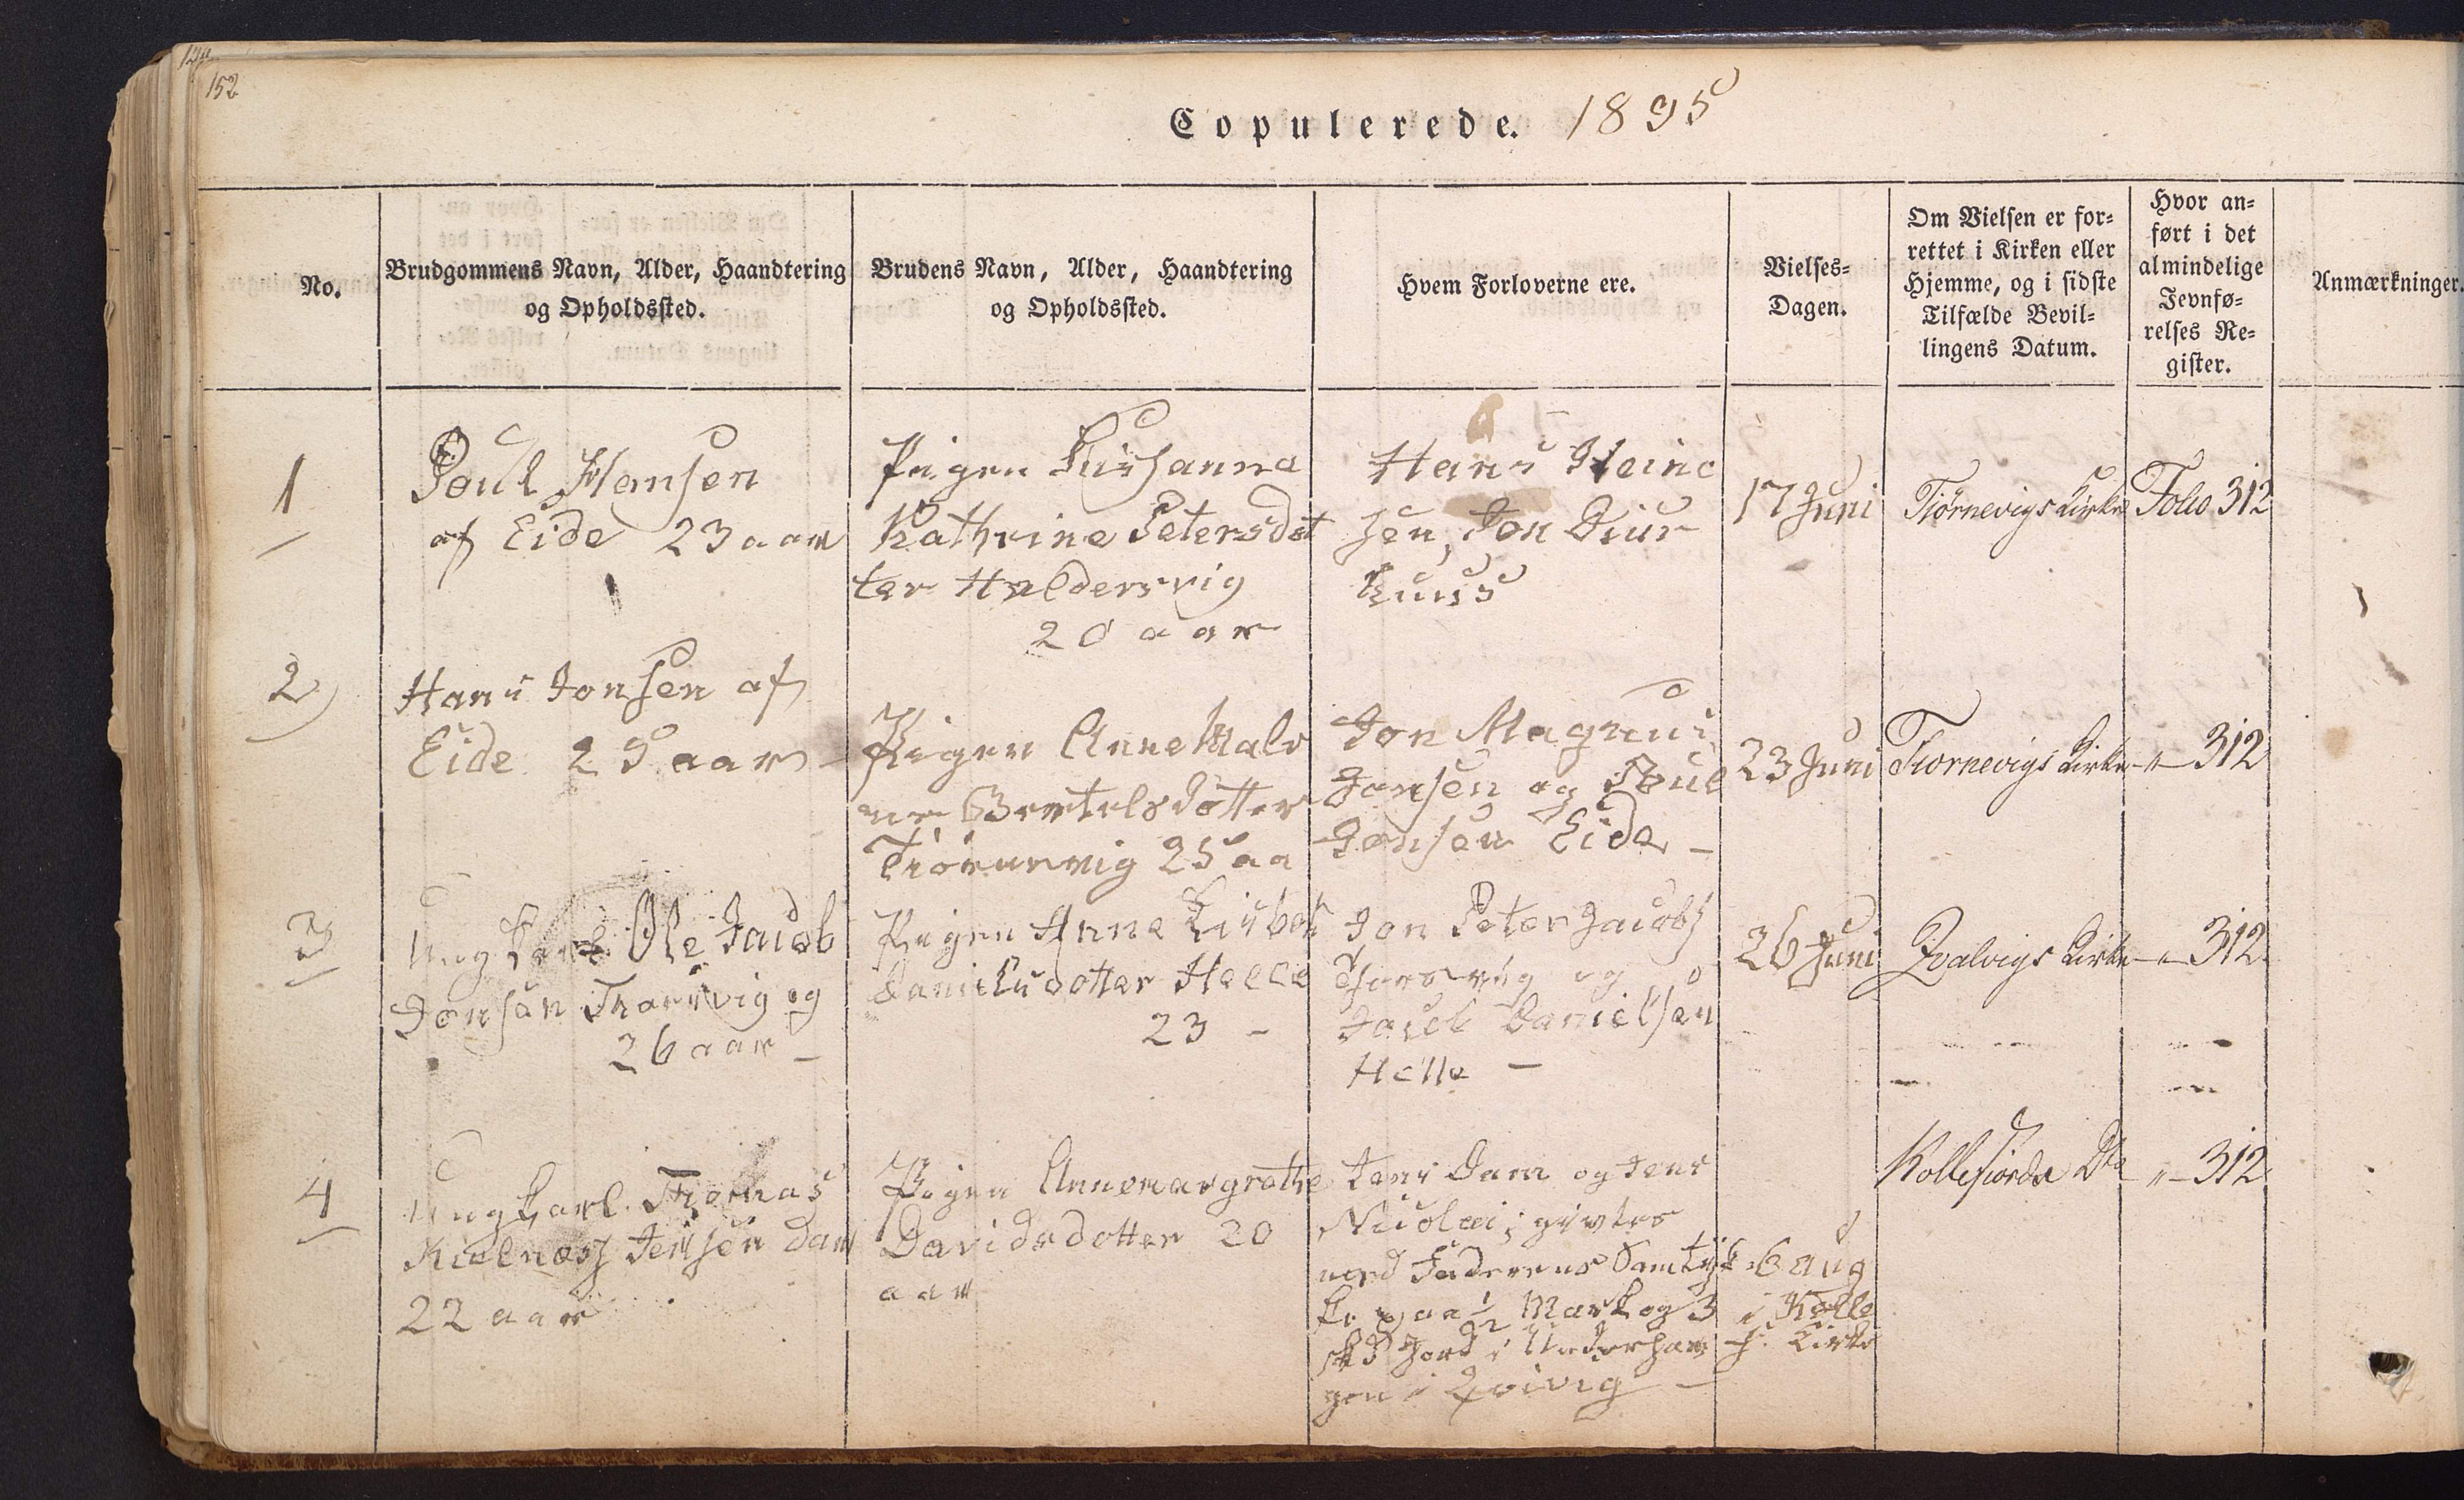 152
Copulerede. 1835
No.
Brudgommens Navn, Alder, Haandtering
og Opholdssted.
Brudens Navn, Alder, Haandtering
og Opholdssted.
Hvem Forloverne ere.
Vielses-
Dagen.
Om Vielsen er for-
rettet i Kirken eller
Hjemme, og i sidste
Tilfælde Bevil-
lingens Datum.
Hvor an-
ført i det
almindelige
Jevnfø-
relses Re-
gister.
Anmærkninger.
1
Poul Hansen
af Eide 23 aar
Pigen Susanna
Kathrine Petersdot
ter Haldersvig
20 aar
Hans Heine
sen, Jon Diur
huus
17 Juni
Tiørnevigs Kirke
Folio 312
2)
Hans Jonsen af
Eide 25 aar
Pigen Anne Male
ne Bertelsdotter
Tiørnevig 25 aa
Jon Magnus
Jonsen og Poul
Jonsen Eide -
23 Juni
Tiørnevigs Kirke
-"- 312
3
Ungkarl Ole Jacob
Jonsen Thorsvig og
26 aar -
Pigen Anna Lisbeth
Danielsdotter Helle
23 -
Jon Peter Jacobs
Thorsvig og
Jacob Danielsen
Helle -
26 Juni
Qvalvigs Kirke
-"- 312
4
Ungkarl Thomas
Kielnæs Jensen Dam
22 aar
Pigen Annemargrethe
Davidsdotter 20
aar
Jens Dam og Jens
Nicolai; giftes
med Faderens Samtyk
ke paa ½ Mark og 3
skd Jord i Underhau
gen i Qvivig -
6 Aug
i Kolle
f. Kirke
Kollefiords Do
-"- 312